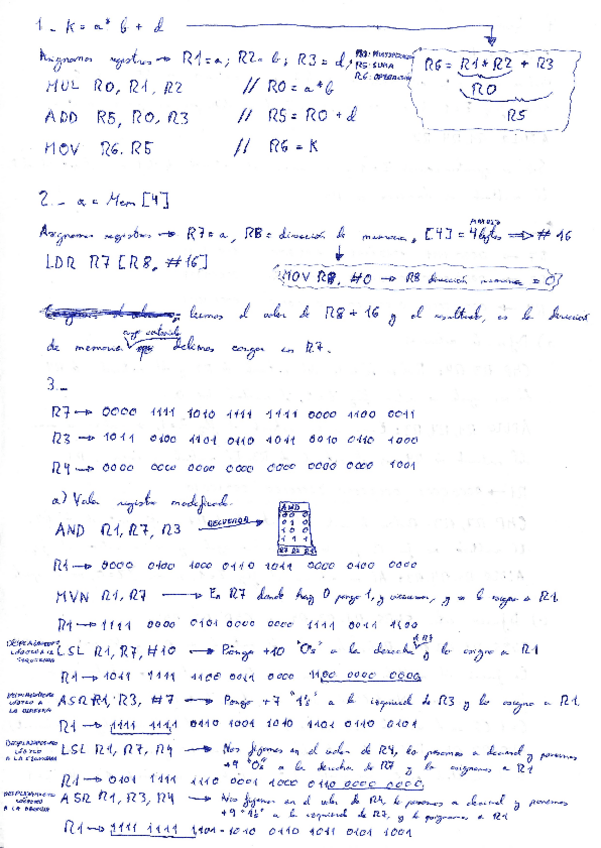 1_ K = a * b + d
Asignamos registros → R1=a; R2=b; R3=d;
R0: MULTIPLICACIÓN
R5: SUMA
R6: OPERACIÓN
R6 = R1*R2 + R3
R0
R5
MUL R0, R1, R2 // R0 = a*b
ADD R5, R0, R3 // R5 = R0 + d
MOV R6, R5 // R6 = K
2_ a = Mem [4]
Asignamos registros → R7=a, R8= dirección de memoria, [4] = 4 bytes ⇒ #16
LDR R7 [R8, #16]
MOV R8, #0 → R8 dirección memoria = 0
leemos el valor de R8 + 16 y el resultado, es la dirección
de memoria cuyo contenido debemos cargar en R7.
3_
R7 → 0000 1111 1010 1111 1111 0000 1100 0011
R3 → 1011 0100 1101 0110 1011 0010 0110 1000
R4 → 0000 0000 0000 0000 0000 0000 0000 1001
a) Valor registro modificado.
AND R1, R7, R3 RECUERDA →
AND
0 0 0
0 1 0
1 0 0
1 1 1
R7 R3 R1
R1 → 0000 0100 1000 0110 1011 0000 0100 0000
MVN R1, R7 → En R7 donde hay 0 pongo 1, y viceversa, y se lo asigno a R1.
R1 → 1111 0000 0101 0000 0000 1111 0011 1100
DESPLAZAMIENTO LÓGICO A LA IZQUIERDA
LSL R1, R7, #10 → Pongo +10 "0s" a la derecha de R7 y lo asigno a R1
R1 → 1011 1111 1100 0011 0000 1100 0000 0000
DESPLAZAMIENTO LÓGICO A LA DERECHA
ASR R1, R3, #7 → Pongo +7 "1s" a la izquierda de R3 y lo asigno a R1.
R1 → 1111 1111 0110 1001 1010 1101 0110 0101
DESPLAZAMIENTO LÓGICO A LA IZQUIERDA
LSL R1, R7, R4 → Nos fijamos en el valor de R4, lo pasamos a decimal y ponemos
+9 "0s" a la derecha de R7 y lo asignamos a R1
R1 → 0101 1111 1110 0001 1000 0110 0000 0000
DESPLAZAMIENTO LÓGICO A LA DERECHA
ASR R1, R3, R4 → Nos fijamos en el valor de R4 lo pasamos a decimal y ponemos
+9 "1s" a la izquierda de R7, y lo asignamos a R1
R1 → 1111 1111 1101 1010 0110 1011 0101 1001